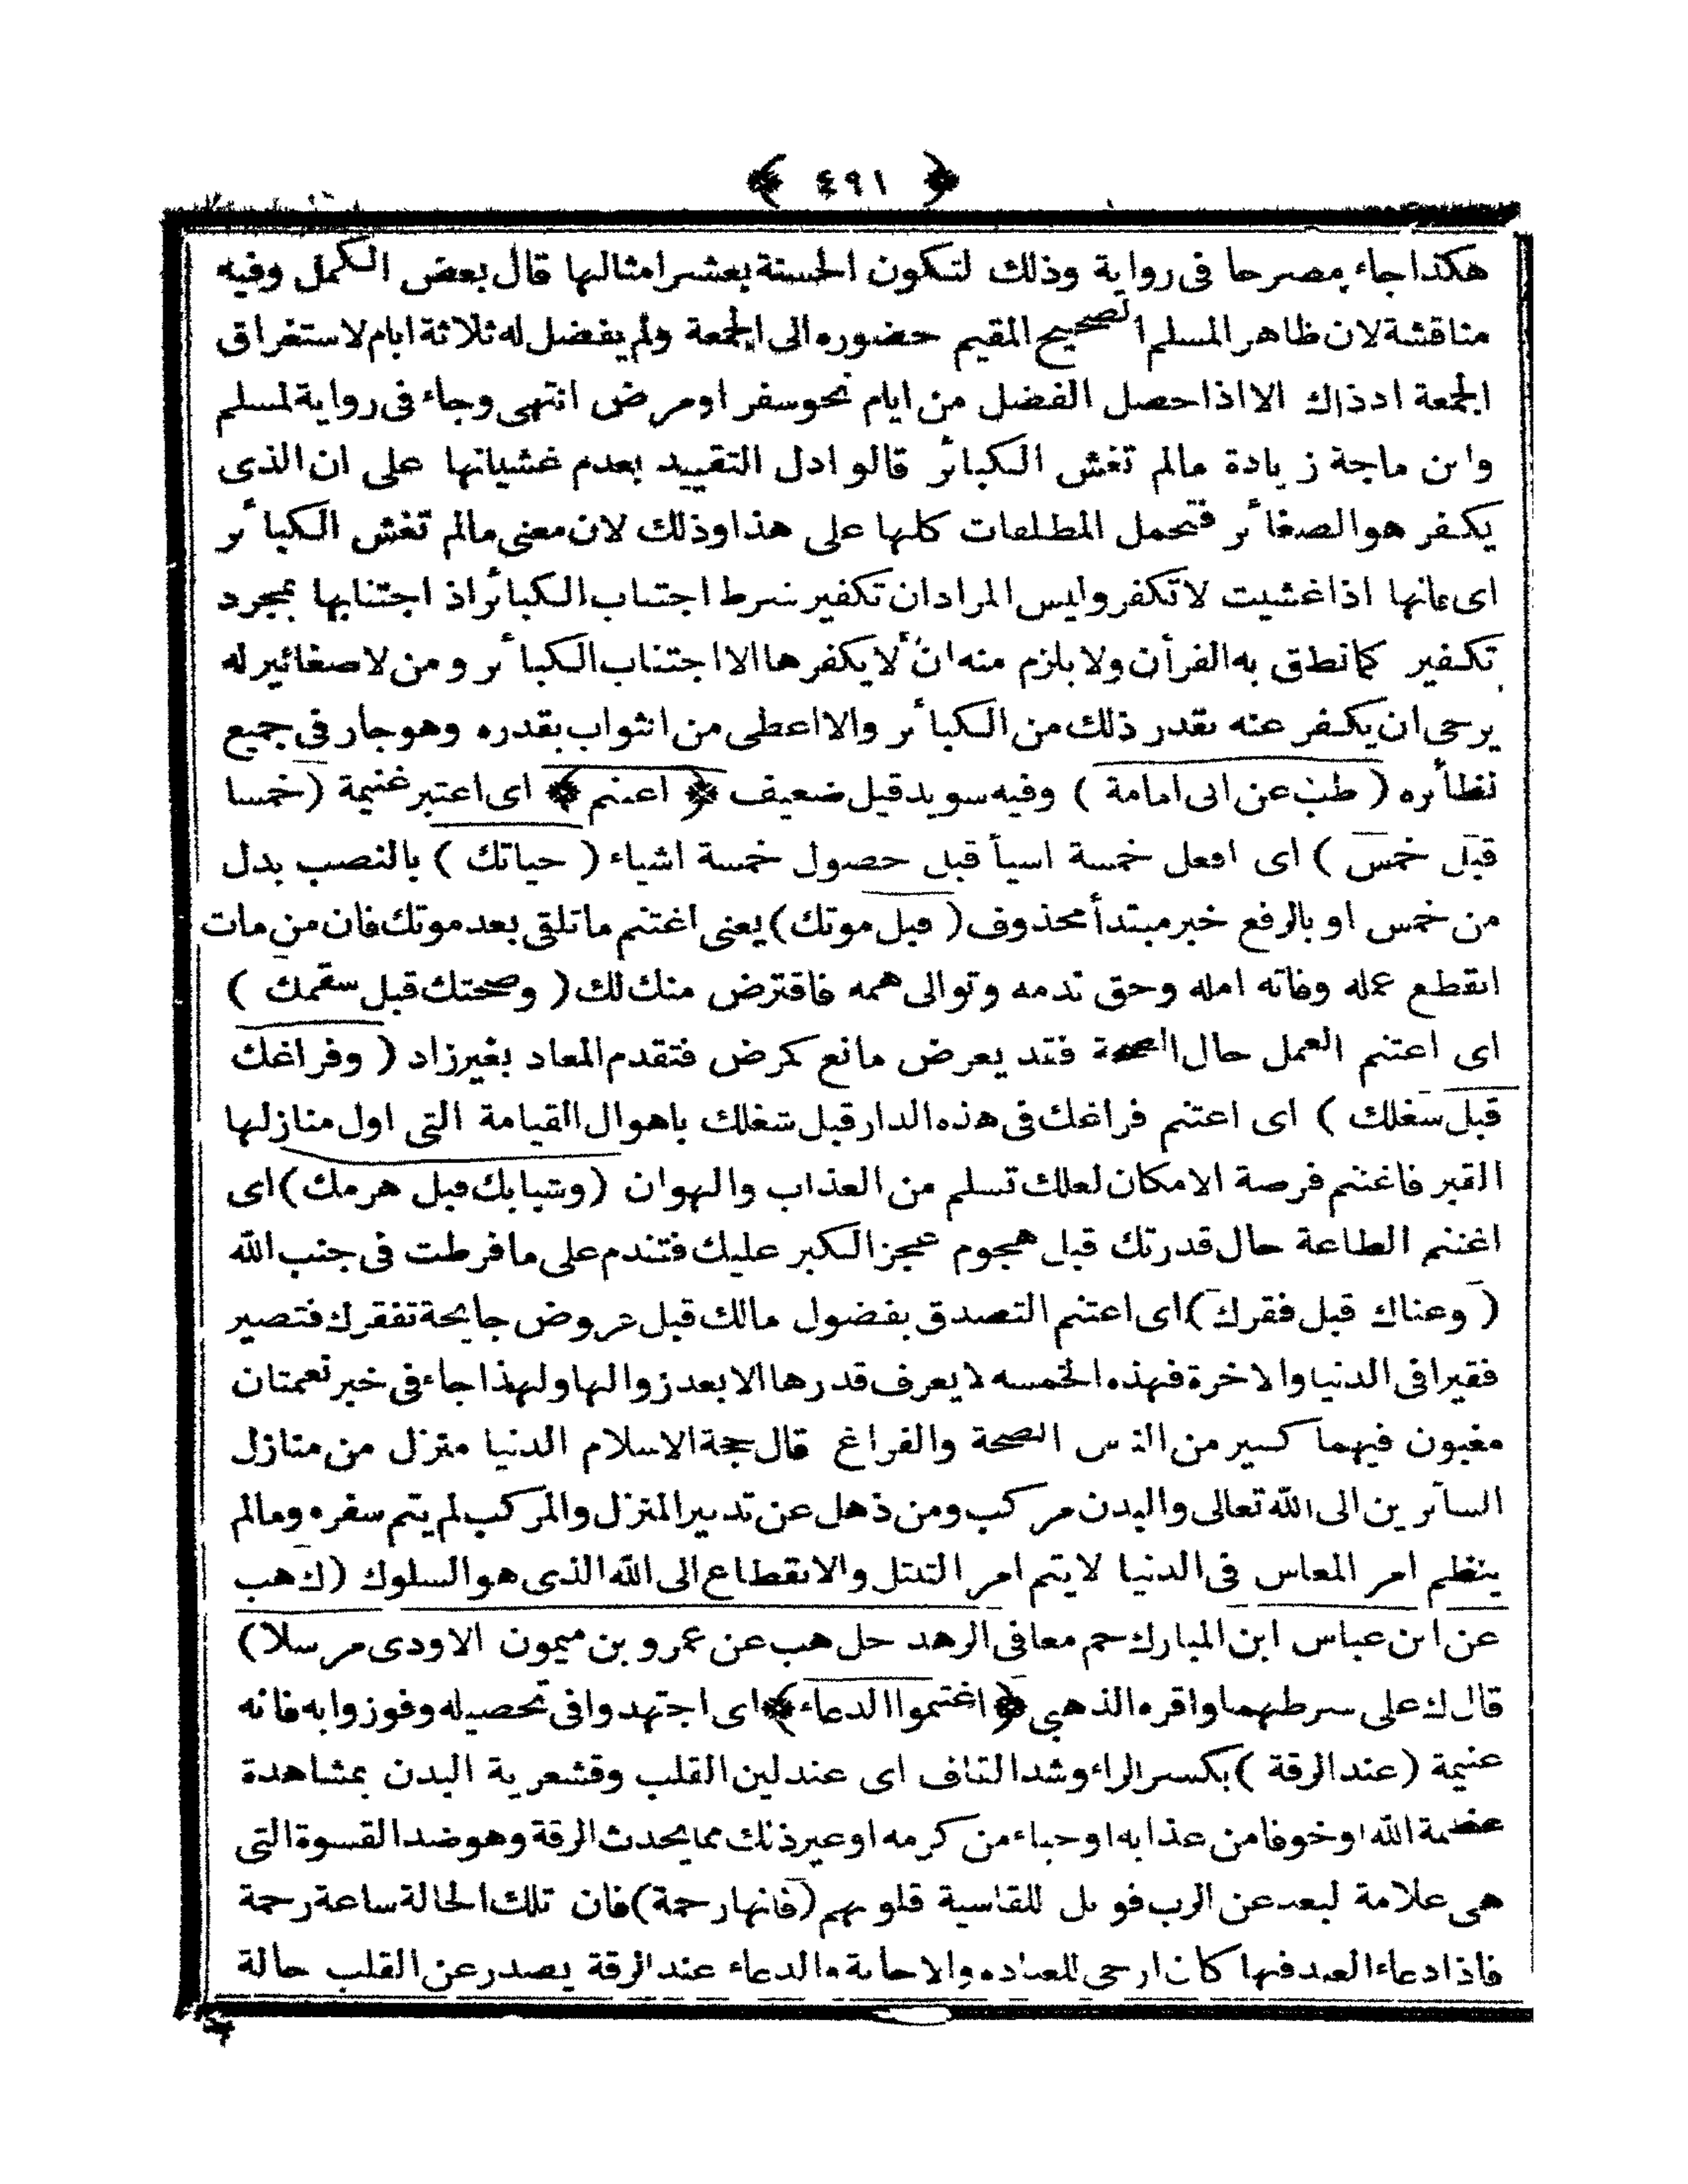 ﴿ ٤٩١ ﴾
هكذا جاء مصرحا فى رواية وذلك لتكون الحسنة بعشر امثالها قال بعض الكمل وفيه
مناقشة لان ظاهر المسلم الصحيح المقيم حضوره الى الجمعة ولم يفضل له ثلاثة ايام لاستغراق
الجمعة اذ ذاك الا اذا حصل الفضل من ايام نحو سفر او مرض انتهى وجاء فى رواية لمسلم
وابن ماجة زيادة مالم تغش الكبائر قالوا دل التقييد بعدم غشيانها على ان الذى
يكفر هو الصغائر فتحمل المطلقات كلها على هذا وذلك لان معنى مالم تغش الكبائر
اى فانها اذا غشيت لا تكفر وليس المراد ان تكفير شرط اجتناب الكبائر اذ اجتنابها بمجرد
تكفير كما نطق به القرأن ولا يلزم منه ان لا يكفرها الا اجتناب الكبائر ومن لا صغائير له
يرجى ان يكفر عنه بقدر ذلك من الكبائر والا اعطى من الثواب بقدره وهو جار فى جميع
نظائره ( طب عن ابى امامة ) وفيه سويد قيل ضعيف ﴿ اغتنم ﴾ اى اعتبر غنيمة ( خمسا
قبل خمس ) اى افعل خمسة اشيأ قبل حصول خمسة اشياء ( حياتك ) بالنصب بدل
من خمس او بالرفع خبر مبتدأ محذوف ( قبل موتك ) يعنى اغتنم ما تلقى بعد موتك فان من مات
انقطع عمله وفاته امله وحق ندمه وتوالى همه فاقترض منك لك ( وصحتك قبل سقمك )
اى اغتنم العمل حال الصحة فقد يعرض مانع كمرض فتقدم المعاد بغير زاد ( وفراغك
قبل شغلك ) اى اغتنم فراغك فى هذه الدار قبل شغلك باهوال القيامة التى اول منازلها
القبر فاغتنم فرصة الامكان لعلك تسلم من العذاب والهوان ( وشبابك قبل هرمك ) اى
اغتنم الطاعة حال قدرتك قبل هجوم عجز الكبر عليك فتندم على ما فرطت فى جنب الله
( وغناك قبل فقرك ) اى اغتنم التصدق بفضول مالك قبل عروض جايحة تفقرك فتصير
فقيرا فى الدنيا والاخرة فهذه الخمسه لا يعرف قدرها الا بعد زوالها ولهذا جاء فى خبر نعمتان
مغبون فيهما كثير من الناس الصحة والفراغ قال حجة الاسلام الدنيا منزل من منازل
السائرين الى الله تعالى والبدن مركب ومن ذهل عن تدبير المنزل والمركب لم يتم سفره ومالم
ينظم امر المعاش فى الدنيا لا يتم امر التبتل والانقطاع الى الله الذى هو السلوك ( ك هب
عن ابن عباس ابن المبارك حم معا فى الزهد حل هب عن عمرو بن ميمون الاودى مرسلا )
قال ك على شرطهما واقره الذهبى ﴿ اغتنموا الدعاء ﴾ اى اجتهدوا فى تحصيله وفوزوا به فانه
غنيمة ( عند الرقة ) بكسر الراء وشد القاف اى عند لين القلب وقشعرية البدن بمشاهدة
عظمة الله او خوفا من عذابه او حياء من كرمه او غير ذلك مما يحدث الرقة وهو ضد القسوة التى
هى علامة لبعد عن الرب فويل للقاسية قلوبهم ( فانها رحمة ) فان تلك الحالة ساعة رحمة
فاذا دعاء العبد فيها كان ارجى للعباده والاجابة والدعاء عند الرقة يصدر عن القلب حالة